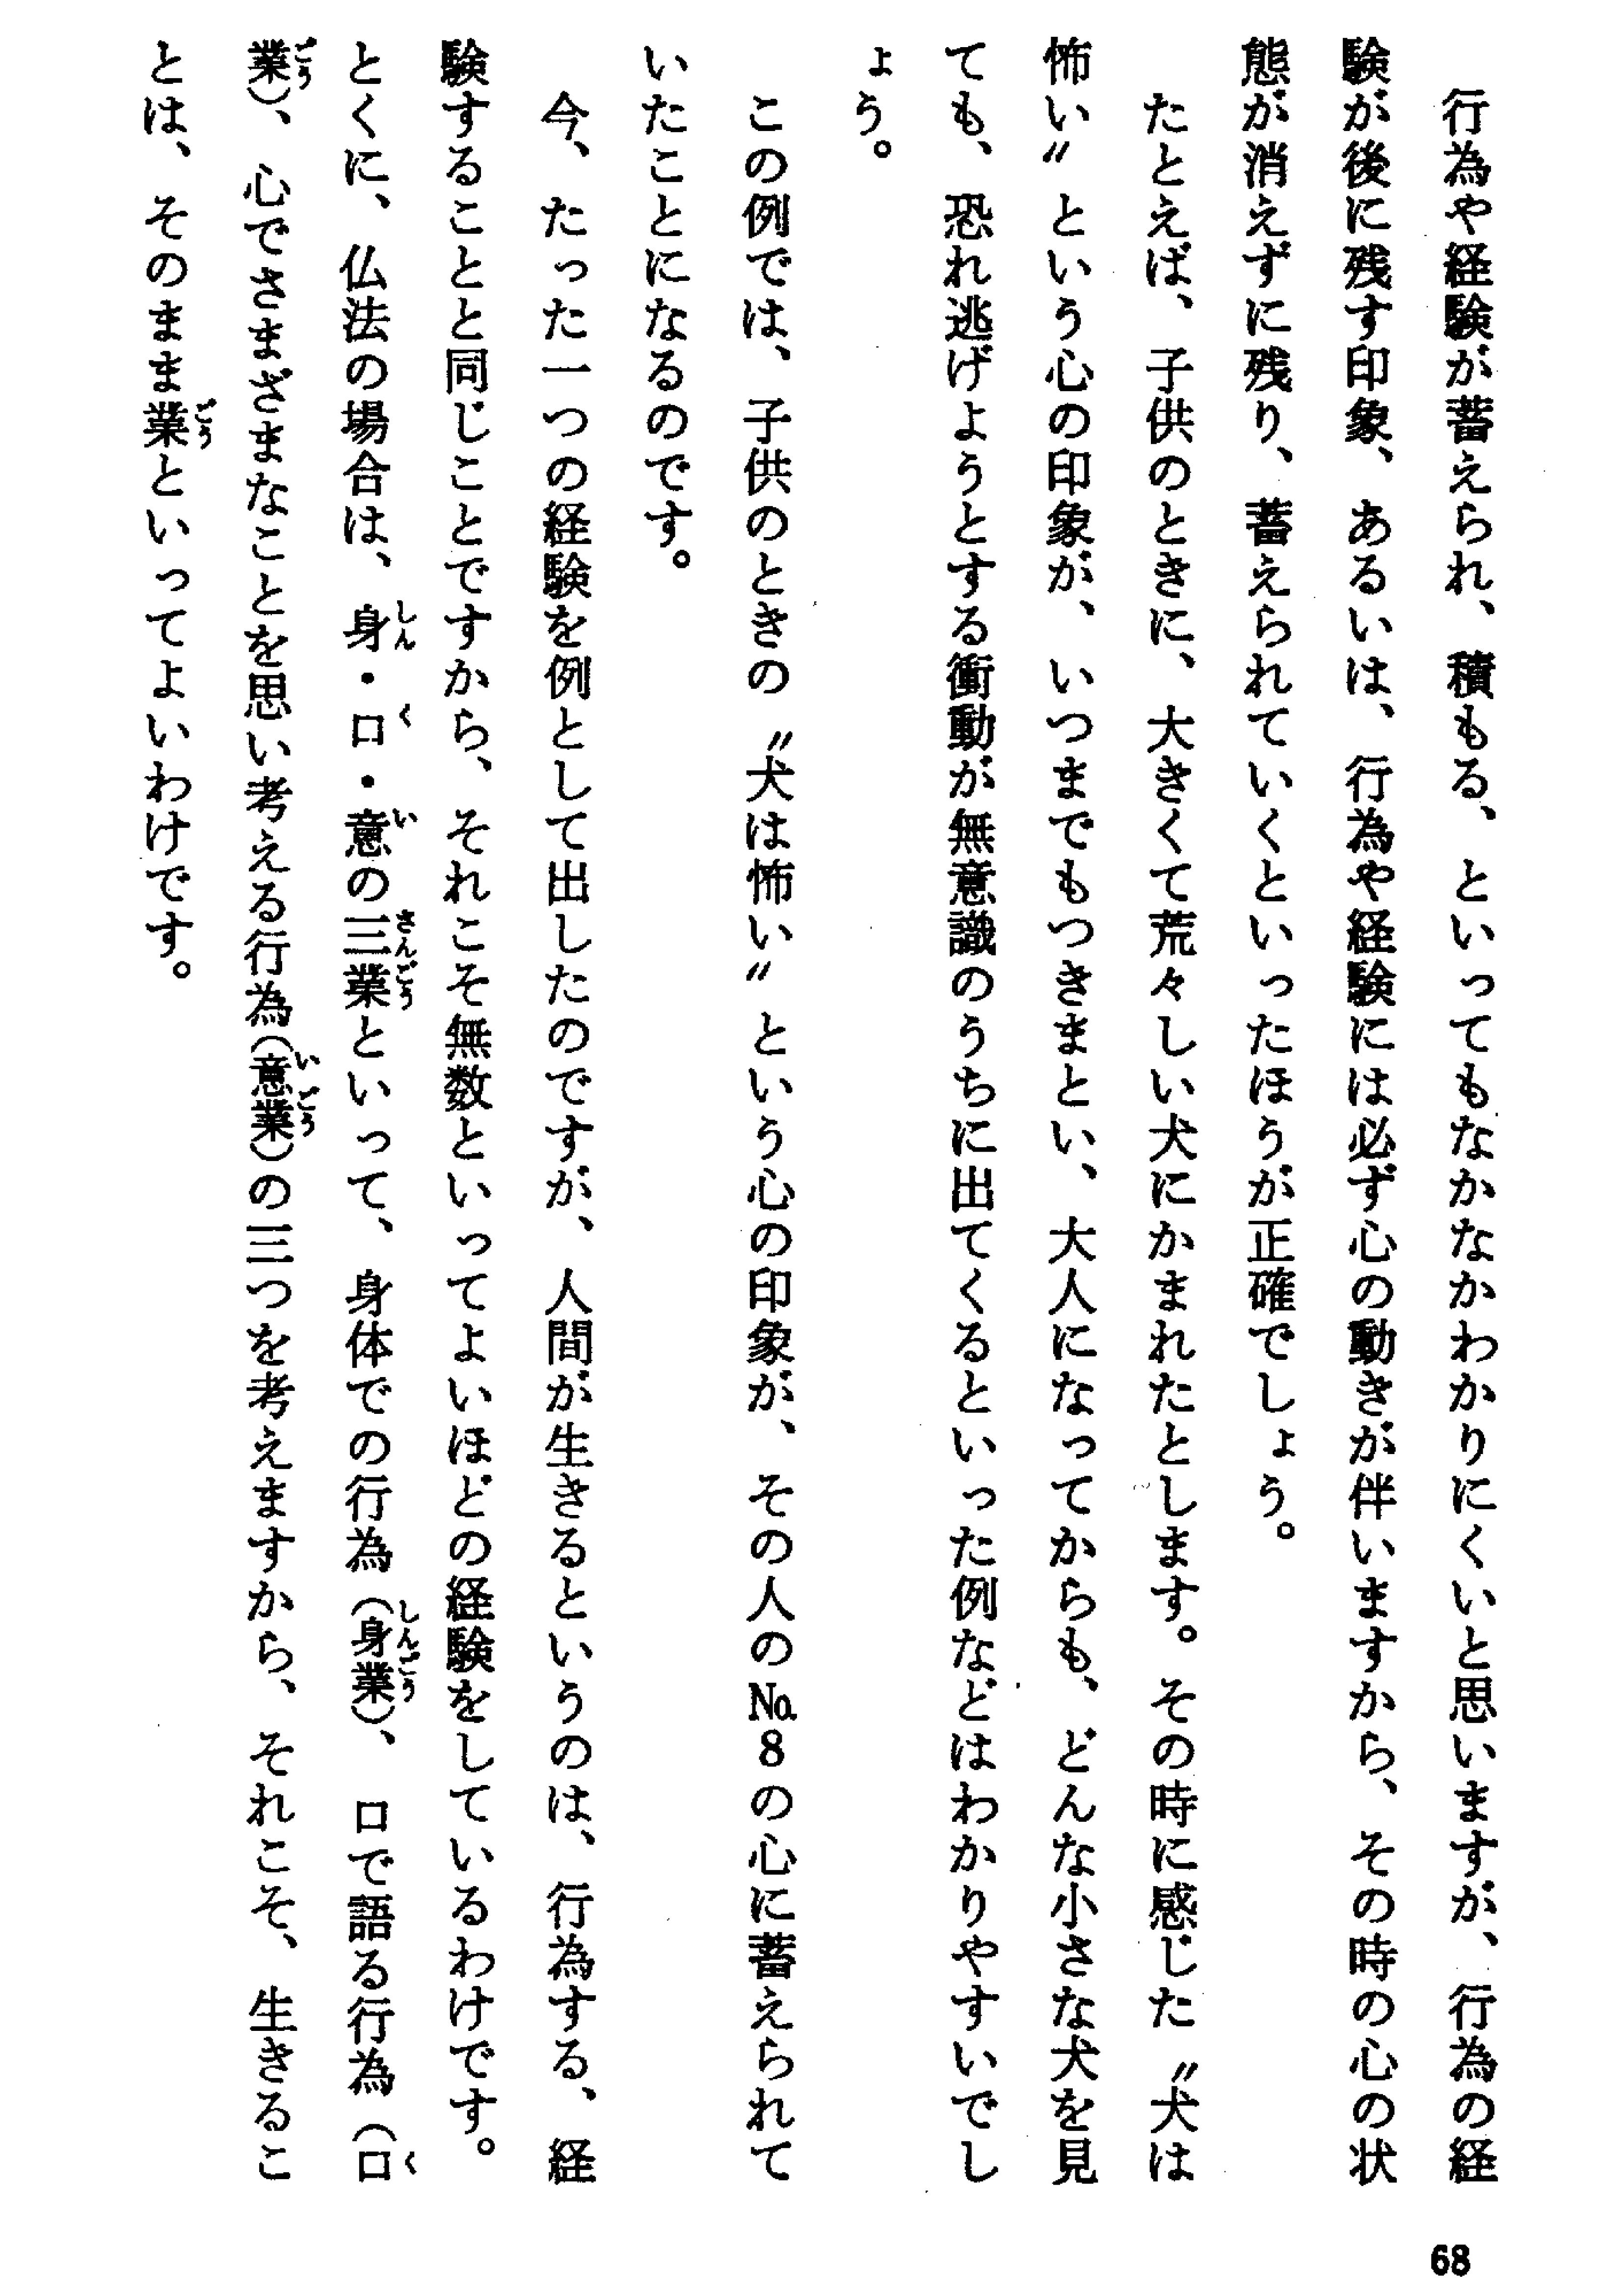 行為や経験が蓄えられ、積もる、といってもなかなかわかりにくいと思いますが、行為の経
験が後に残す印象、あるいは、行為や経験には必ず心の動きが伴いますから、その時の心の状
態が消えずに残り、蓄えられていくといったほうが正確でしょう。
たとえば、子供のときに、大きくて荒々しい犬にかまれたとします。その時に感じた〝犬は
怖い〟という心の印象が、いつまでもつきまとい、大人になってからも、どんな小さな犬を見
ても、恐れ逃げようとする衝動が無意識のうちに出てくるといった例などはわかりやすいでし
ょう。
この例では、子供のときの〝犬は怖い〟という心の印象が、その人の№8の心に蓄えられて
いたことになるのです。
今、たった一つの経験を例として出したのですが、人間が生きるというのは、行為する、経
験することと同じことですから、それこそ無数といってよいほどの経験をしているわけです。
とくに、仏法の場合は、身・口・意の三業といって、身体での行為（身業）、口で語る行為（口
業）、心でさまざまなことを思い考える行為（意業）の三つを考えますから、それこそ、生きるこ
とは、そのまま業といってよいわけです。
68